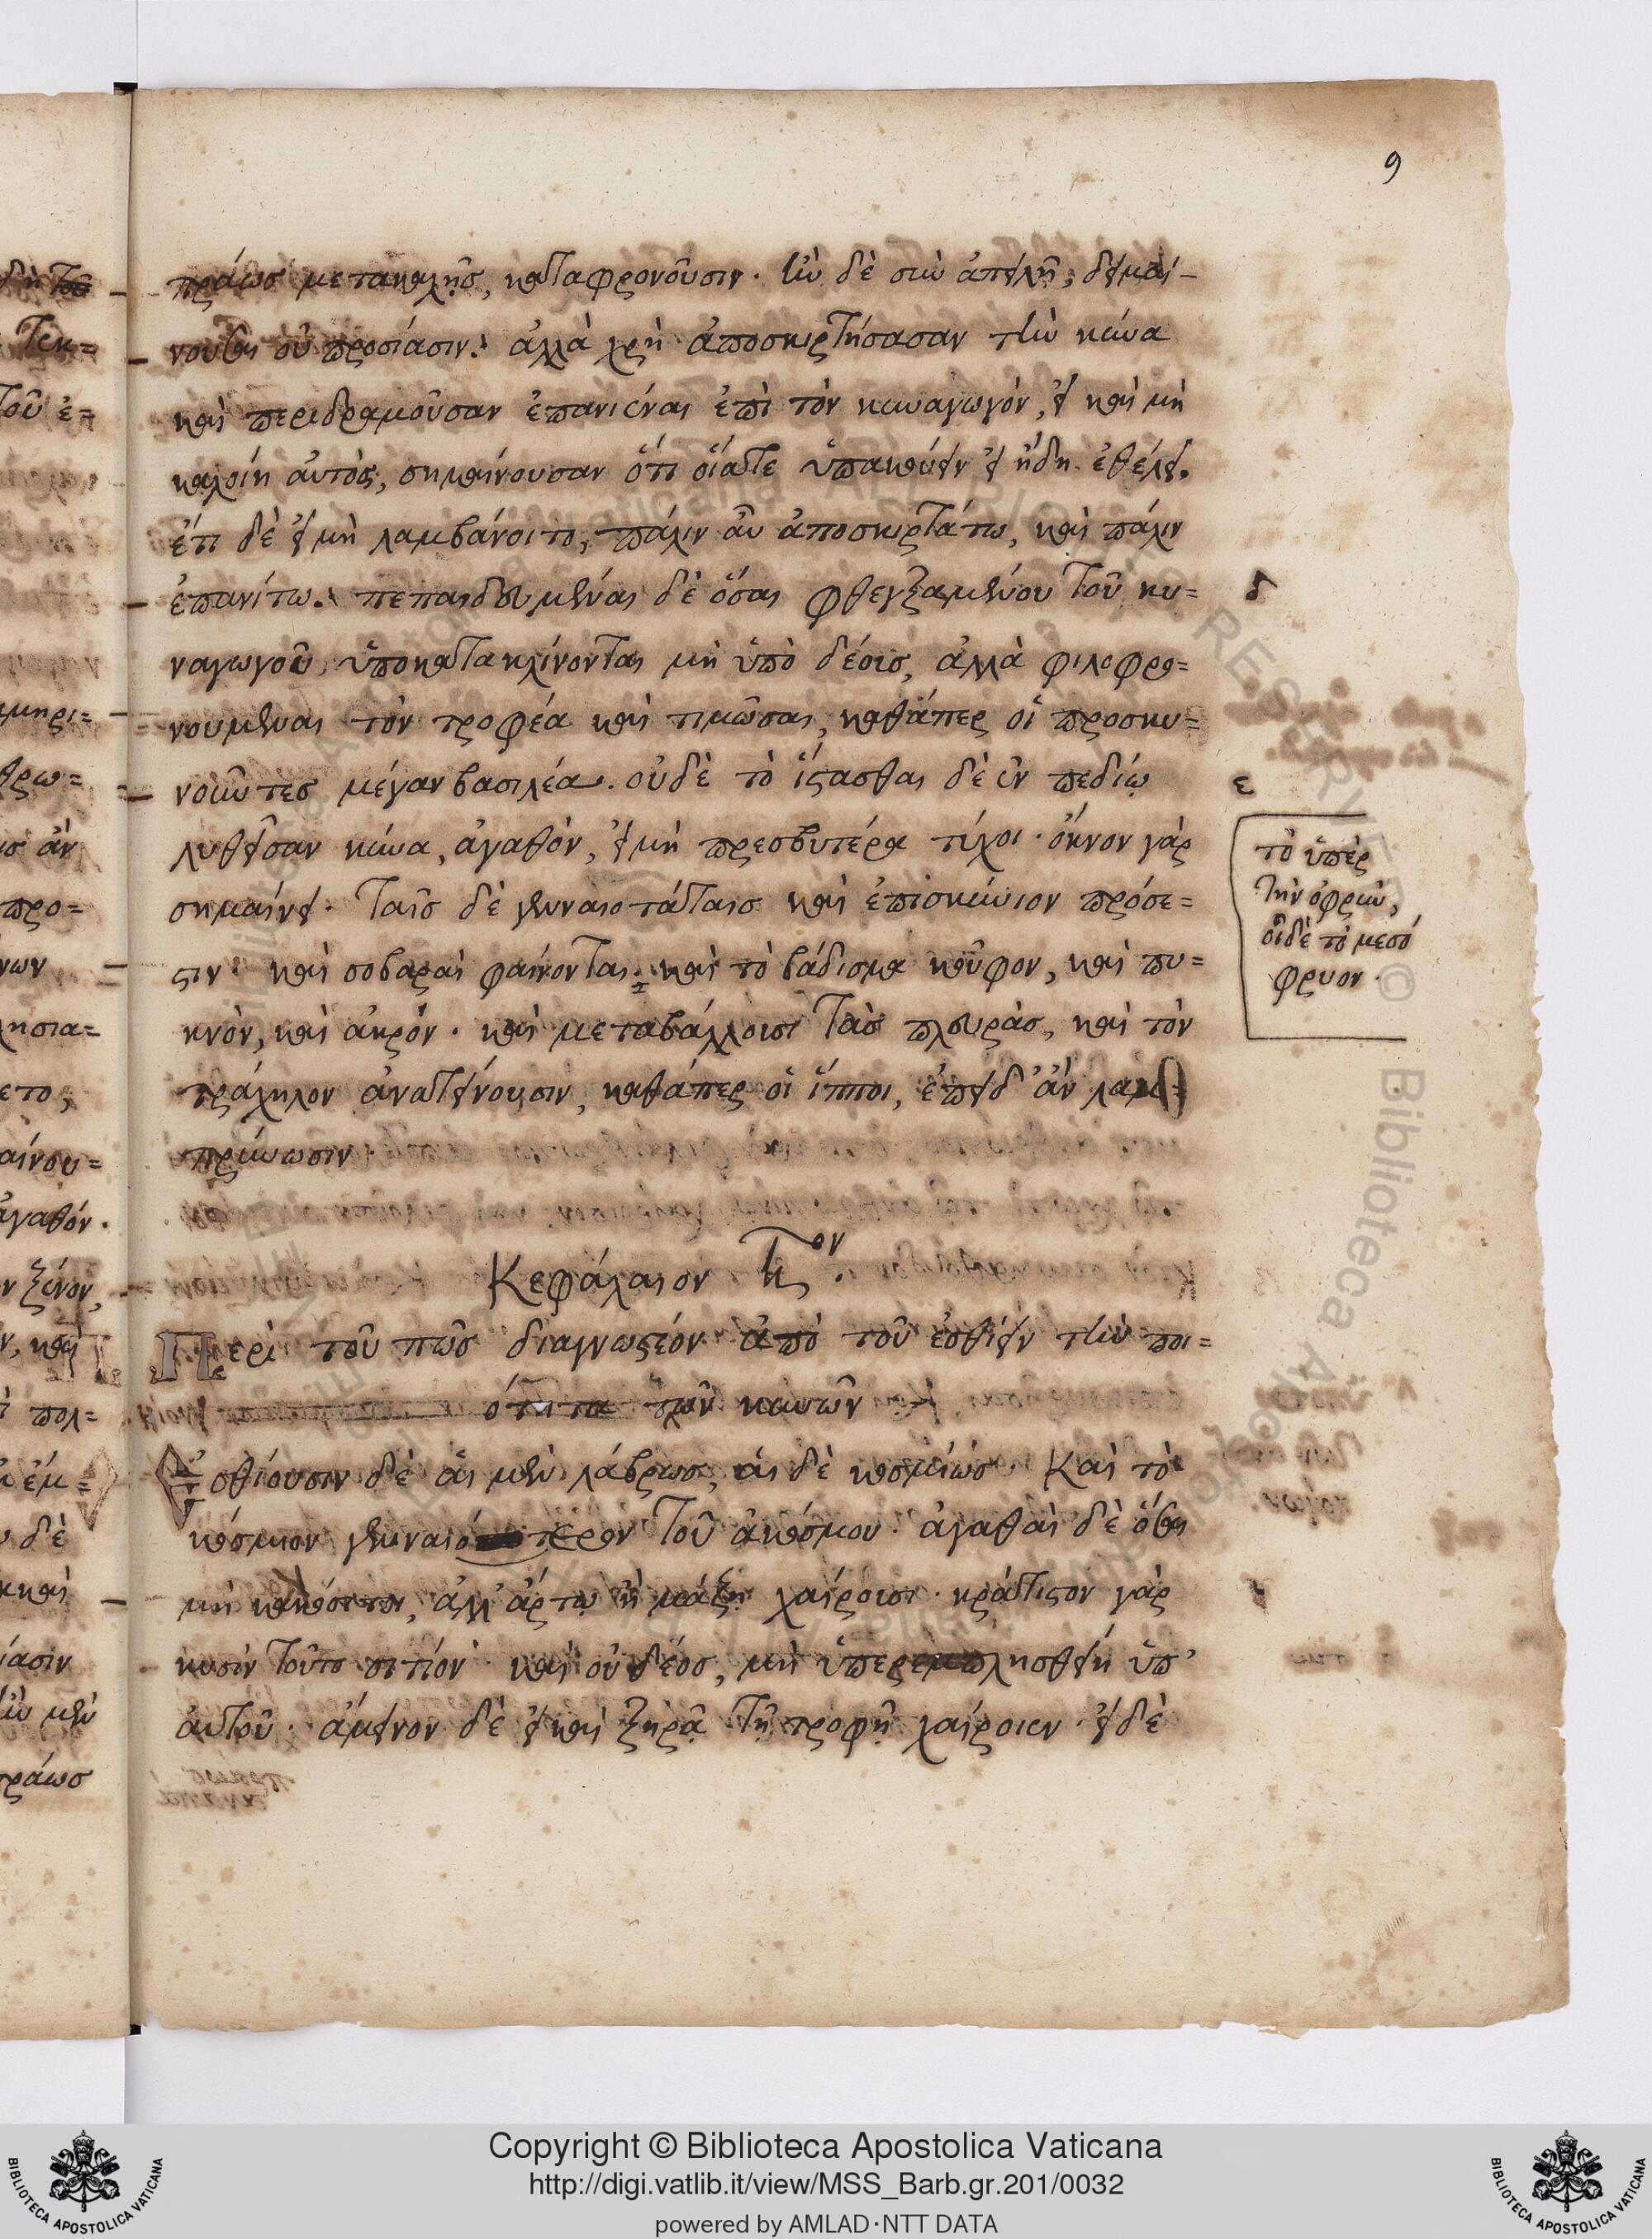 9
πράως μετακαλῇς, καταφρονοῦσιν· ἢν δὲ σὺν ἀπειλῇ, δειμαί-
νουσαι οὐ προσίασιν. ἀλλὰ χρὴ ἀποσκιρτήσασαν τὴν κύνα
καὶ περιδραμοῦσαν ἐπανιέναι ἐπὶ τὸν κυναγωγόν, εἰ καὶ μὴ
καλοίη αὐτὸς, σημαίνουσαν ὅτι οἵατε ὑπακούειν εἰ ἤδη ἐθέλει.
ἔτι δὲ εἰ μὴ λαμβάνοιτο, πάλιν αὖ ἀποσκιρτάτω, καὶ πάλιν
ἐπανίτω. πεπαιδευμέναι δὲ ὅσαι φθεγξαμένου τοῦ κυ=
ναγωγοῦ, ὑποκατακλίνονται μὴ ὑπὸ δέους, ἀλλὰ φιλοφρο=
νουμεναι τὸν τροφέα καὶ τιμῶσαι, καθάπερ οἱ προσκυ=
νοῦντες μέγαν βασιλέα. οὐδὲ τὸ ἵστασθαι δὲ ἐν πεδίῳ
λυθεῖσαν κύνα, ἀγαθὸν, εἰ μὴ πρεσβυτέρα τύχοι· ὄκνον γὰρ
σημαίνει. Ταῖς δὲ γενναιοτάταις καὶ ἐπισκύνιον πρόσε=
στιν· καὶ σοβαραὶ φαίνονται· καὶ τὸ βάδισμα κοῦφον, καὶ πυ=
κνὸν, καὶ ἀκρόν. καὶ μεταβάλλουσι τὰς πλευράς, καὶ τὸν
τράχηλον ἀνατείνουσιν, καθάπερ οἱ ἵπποι, ἐπειδ' ἂν λαμ
πρύνωσιν
Κεφάλαιον ηον.
Περὶ τοῦ πῶς διαγνωστέον ἀπὸ τοῦ ἐσθίειν τὴν ποι=
ότητα τῶν κυνῶν
Ἐσθίουσιν δὲ αἱ μὲν λάβρως, αἱ δὲ κοσμίως Καὶ τὸ
κόσμιον γενναιότερον τοῦ ἀκόσμου. ἀγαθαὶ δὲ ὅσαι
μὴ, ἀλλ' ἄρτῳ ἢ μάζῃ χαίρουσι. κράτιστον γὰρ
κυσὶν τοῦτο σιτίον· καὶ οὐ δέος, μὴ ὑπερεμπλησθείη ὑπ'
αὐτοῦ. ἄμεινον δὲ εἰ καὶ ξηρᾷ τῇ τροφῇ χαίροιεν· εἰ δὲ
δ
ε
τὸ ὑπὲρ
τὴν ὀφρὺν,
οἱδὲ τὸ μεσό
φρυον.
Copyright © Biblioteca Apostolica Vaticana
http://digi.vatlib.it/view/MSS_Barb.gr.201/0032
powered by AMLAD·NTT DATA
BIBLIOTECA APOSTOLICA VATICANA
BIBLIOTECA APOSTOLICA VATICANA